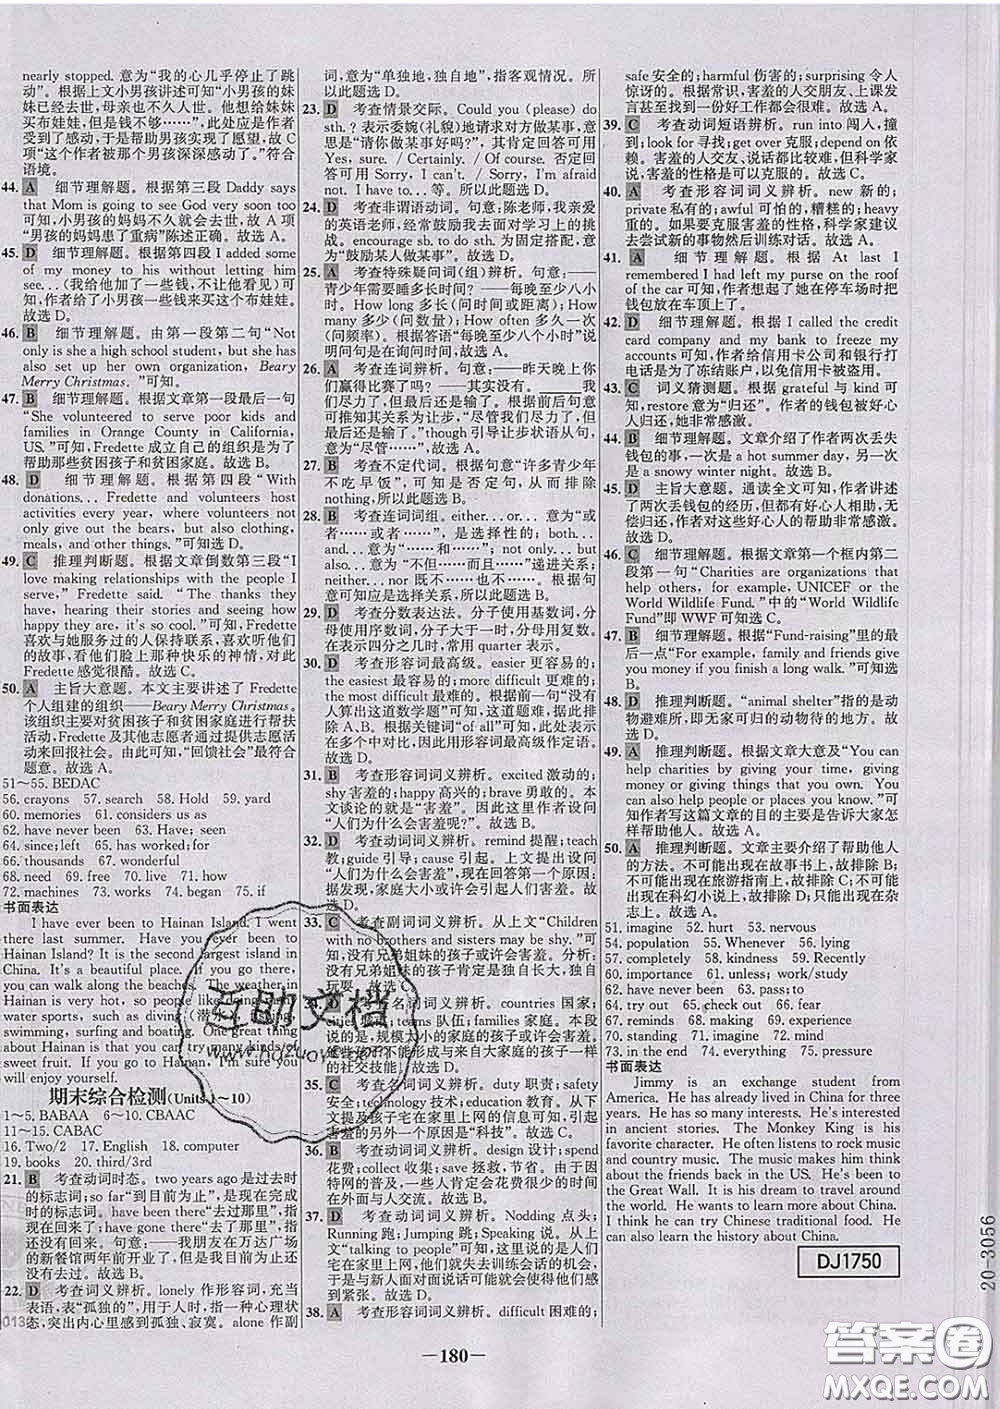 nearly stopped. 意为“我的心几乎停止了跳
动”。根据上文小男孩讲述可知“小男孩的妹
妹已经去世,母亲也不久人世。他想给妹妹
买布娃娃,但是钱不够……”,此处应是作者
受到了感动,于是帮助男孩实现了愿望,故 C
项“这个作者被那个男孩深深感动了。”符合
语境。
44. A 细节理解题。根据第三段 Daddy says
that Mom is going to see God very soon too
可知,小男孩的妈妈不久就会去世,故 A 项
“男孩的妈妈患了重病”陈述正确。故选 A。
45. D 细节理解题。根据第四段 I added some
of my money to his without letting him
see...(我给他加了一些钱,不让他看见)可知,
作者给了小男孩一些钱来买这个布娃娃。故
选 D。
46. B 细节理解题。由第一段第二句“Not
only is she a high school student, but she has
also set up her own organization, Beary
Merry Christmas.”可知。
47. B 细节理解题。根据文章第一段最后一句
“She volunteered to serve poor kids and
families in Orange County in California,
US.”可知,Fredette 成立自己的组织是为了
帮助那些贫困孩子和贫困家庭。故选 B。
48. D 细节理解题。根据第四段“With
donations... Fredette and volunteers host
activities every year, where volunteers
not only give out the bears, but also clothing,
meals, and other things.”可知选 D。
49. C 推理判断题。根据文章倒数第三段“I
love making relationships with the people I
serve,” Fredette said. “The thanks they
have, hearing their stories and seeing how
happy they are, it's so cool.”可知,Fredette
喜欢与她服务过的人保持联系,喜欢听他们
的故事,看他们脸上那种快乐的神情,对此
Fredette 感觉很酷。故选 C。
50. A 主旨大意题。本文主要讲述了 Fredette
个人组建的组织——Beary Merry Christmas。
该组织主要对贫困孩子和贫困家庭进行帮扶
活动,Fredette 及其他志愿者通过提供志愿活
动来回报社会。由此可知,“回馈社会”最符合
题意。故选 A。
51~55. BEDAC
56. crayons 57. search 58. Hold 59. yard
60. memories 61. considers us as
62. have never been 63. Have; seen
64. since; left 65. has worked; for
66. thousands 67. wonderful
68. need 69. free 70. live 71. how
72. machines 73. works 74. began 75. if
书面表达
I have ever been to Hainan Island. I went
there last summer. Have you ever been to
Hainan Island? It is the second largest island in
China. It's a beautiful place. If you go there,
you can walk along the beaches. The weather in
Hainan is very hot, so people like doing some
water sports, such as diving (潜水), fishing,
swimming, surfing and boating. One great thing
about Hainan is that you can enjoy fresh and
sweet fruit. If you go to Hainan, I'm sure you
will enjoy yourself.
期末综合检测(Units 1~10)
1~5. BABAA 6~10. CBAAC
11~15. CABAC
16. Two/2 17. English 18. computer
19. books 20. third/3rd
21. B 考查动词时态。two years ago 是过去时
的标志词;so far“到目前为止”,是现在完成
时的标志词。have been there“去过那里”,
现在回来了;have gone there“去了那里”,尚
未回来。句意:——我朋友在万达广场
的新餐馆两年前开业了,到目前为止我去过
那里几次。故选 B。
22. D 考查词义辨析。lonely 作形容词,充当
表语,表“孤独的”,用于人,指一种心理状
态,突出内心里感到孤独、寂寞。alone 作副
词,意为“单独地,独自地”,指客观情况。所
以此题选 D。
23. D 考查情景交际。Could you (please) do
sth.? 表示委婉(礼貌)地请求对方做某事,意
思是“请你做某事好吗?”,其肯定回答可用
Yes, sure. / Certainly. / Of course. 否定回答
可用 Sorry, I can't. / Sorry, I'm afraid
not. I have to...等。所以此题选 D。
24. D 考查非谓语动词。句意:陈老师,我亲爱
的英语老师,经常鼓励我去面对学习上的挑
战。encourage sb. to do sth. 为固定搭配,意
为“鼓励某人做某事”。故选 D。
25. A 考查特殊疑问词(组)辨析。句意:——
青少年需要睡多长时间?——每晚至少八小
时。How long 多长(问时间或实物长度);How
many 多少(问数量);How often 多久一次
(问频率)。根据答语“每晚至少八个小时”说
明问句是在询问时间,故选 A。
26. A 考查连词辨析。句意:——昨天晚上你
们赢得比赛了吗?——其实没有。______我
们尽力了,但最后还是输了。根据前后句意
可推知其关系为让步,“尽管我们尽力了,但
最后还是输了。”though 引导让步状语从句,意
为“尽管……”。故选 A。
27. B 考查不定代词。根据句意“许多青少年
不吃早饭”,可知是否定句,从而排除
nothing,所以此题选 B。
28. B 考查连词词组。either...or... 意为“或
者……或者……”,是选择性的;both...
and...意为“……和……都”;not only...but
also...意为“不但……而且……”递进关系;
neither...nor 既不……也不……。根据句
意可知应是选择关系,所以此题选 B。
29. D 考查分数表达法。分子使用基数词,分
母使用序数词,分子大于一时,分母用复数。
在表示四分之几时,常用 quarter 表示。
30. D 考查形容词最高级。easier 更容易的;
easiest 最容易的;more difficult 更难的;the
most difficult 最难的。根据前一句“没有
人算出这道数学题”可知,题难,因此排
除A、B。根据关键词“of all”可知,此处表示
在多个中对比,因此用形容词最高级作定语。
故选 D。
31. B 考查形容词词义辨析。excited 激动的;
shy 害羞的;happy 高兴的;brave 勇敢的。本
文谈论的就是“害羞”。因此这里作者设问
“人们为什么会害羞呢?”。故选 B。
32. D 考查动词词义辨析。remind 提醒;teach
教;guide 引导;cause 引起。上文提出设问
“人们为什么会害羞”,现在回答第一个原因:据
据发现,家庭大小或许会引起人们害羞。故
选 D。
33. C 考查副词词义辨析。从上文“Children
with no brothers and sisters may be shy.”可
知,没有兄弟姐妹的孩子或许会害羞。分析:
没有兄弟姐妹的孩子肯定是独自长大,独自
玩耍。故选 C。
34. D 考查名词词义辨析。countries 国家;
cities 城市;teams 队伍;families 家庭。本段
说的是,规模大小的家庭的孩子或许会害羞。
这些孩子不能形成与来自大家庭的孩子一样
的社交技能。故选 D。
35. C 考查名词词义辨析。duty 职责;safety
安全;technology 技术;education 教育。从下
文提及孩子宅在家里上网的情况可知,引起
害羞的另外一个原因是“科技”。故选 C。
36. B 考查动词词义辨析。design 设计;spend
花费;collect 收集;save 拯救,节省。由于因
特网的普及,一些人可能会花费更多的时间
在网上,而不愿意花费更多的时间在家里
与人交流。故选 B。
37. D 考查动词词义辨析。Nodding 点头;
Running 跑;Jumping 跳;Speaking 说。从上
文“talking to people”可知,这里说的是人们
不与人交谈,他们就失去训练会话的机会,所以
说与陌生人,新认识的人讲话会让他们感
到紧张。故选 D。
38. A 考查形容词词义辨析。difficult 困难的;
safe 安全的;harmful 伤害的;surprising 令人
惊讶的。根据常识,害羞的人交朋友、上课发
言甚至找到一份好工作都会很难。故选 A。
39. C 考查动词短语辨析。run into 闯入,撞
到;look for 寻找;get over 克服;depend on
依赖。害羞的人交友、说话都比较难,但科学
家说,害羞的性格是可以克服的。故选 C。
40. A 考查形容词词义辨析。new 新的;
private 私有的;awful 可怕的,糟糕的;heavy
重的。如果要克服害羞的性格,科学家建议
去尝试新的事物然后训练对话。故选 A。
41. A 细节理解题。根据 At last I
remembered I had left my purse on the roof
of the car 可知,作者想起了她在停车场时把
钱包放在车顶上了。
42. D 细节理解题。根据 I called the credit
card company and my bank to freeze my
accounts 可知,作者给信用卡公司和银行打
电话是为了冻结账户,以免信用卡被盗用。
43. C 词义猜测题。根据 grateful 与 kind 可
知,restore 意为“归还”。作者的钱包被好心
人归还,她非常感激。
44. B 细节理解题。文章介绍了作者两次丢失
钱包的事,一次是 a hot summer day,另一次
是 a snowy winter night。故选 B。
45. D 主旨大意题。通读全文可知,作者讲述
了两次丢钱包的经历,但都有好心人相助,无
偿归还,作者对这些好心人的帮助非常感激。
故选 D。
46. C 细节理解题。根据文章第一个框内第二
段第一句“Charities are organizations that
help others, for example, UNICEF or the
World Wildlife Fund.”中的“World Wildlife
Fund”即 WWF 可知选 C。
47. B 细节理解题。根据“Fund-raising”里的最
后一点“For example, family and friends give
you money if you finish a long walk.”可知选
B。
48. D 推理判断题。“animal shelter”指的是动
物避难所,即无家可归的动物待的地方。故
选 D。
49. A 推理判断题。根据文章大意及“You can
help charities by giving your time, giving
money or giving things that you own. You
can also help people or places you know.”可
知作者写这篇文章的目的主要是告诉大家怎
样帮助他人。故选 A。
50. A 推理判断题。文章主要介绍了帮助他人
的方法。不可能出现在故事书上,故排除 B;
不可能出现在旅游指南上,故排除 C;不可能
出现在科幻小说上,故排除 D;只能出现在杂
志上。故选 A。
51. imagine 52. hurt 53. nervous
54. population 55. Whenever 56. lying
57. completely 58. kindness 59. Recently
60. importance 61. unless; work/study
62. have been on 63. places; of
64. try out 65. check out 66. fear
67. reminds 68. making 69. experience
70. standing 71. imagine 72. mind
73. in the end 74. everything 75. pressure
书面表达
Jimmy is an exchange student from
America. He has already lived in China for
three years. He has so many interests. He's
interested in ancient stories. The Monkey King is his
favorite character. He often listens to rock music
and country music. The music makes him think
about the friends back in the US. He's been to
the Great Wall. It is his dream to travel around
the world. He wants to learn more about China.
I think he can try Chinese traditional food. He can
also learn the history about China.
DJ1750
20-3056
013
—180—
互助文档
www.hdzuoye.com
答案圈
MXQE.COM